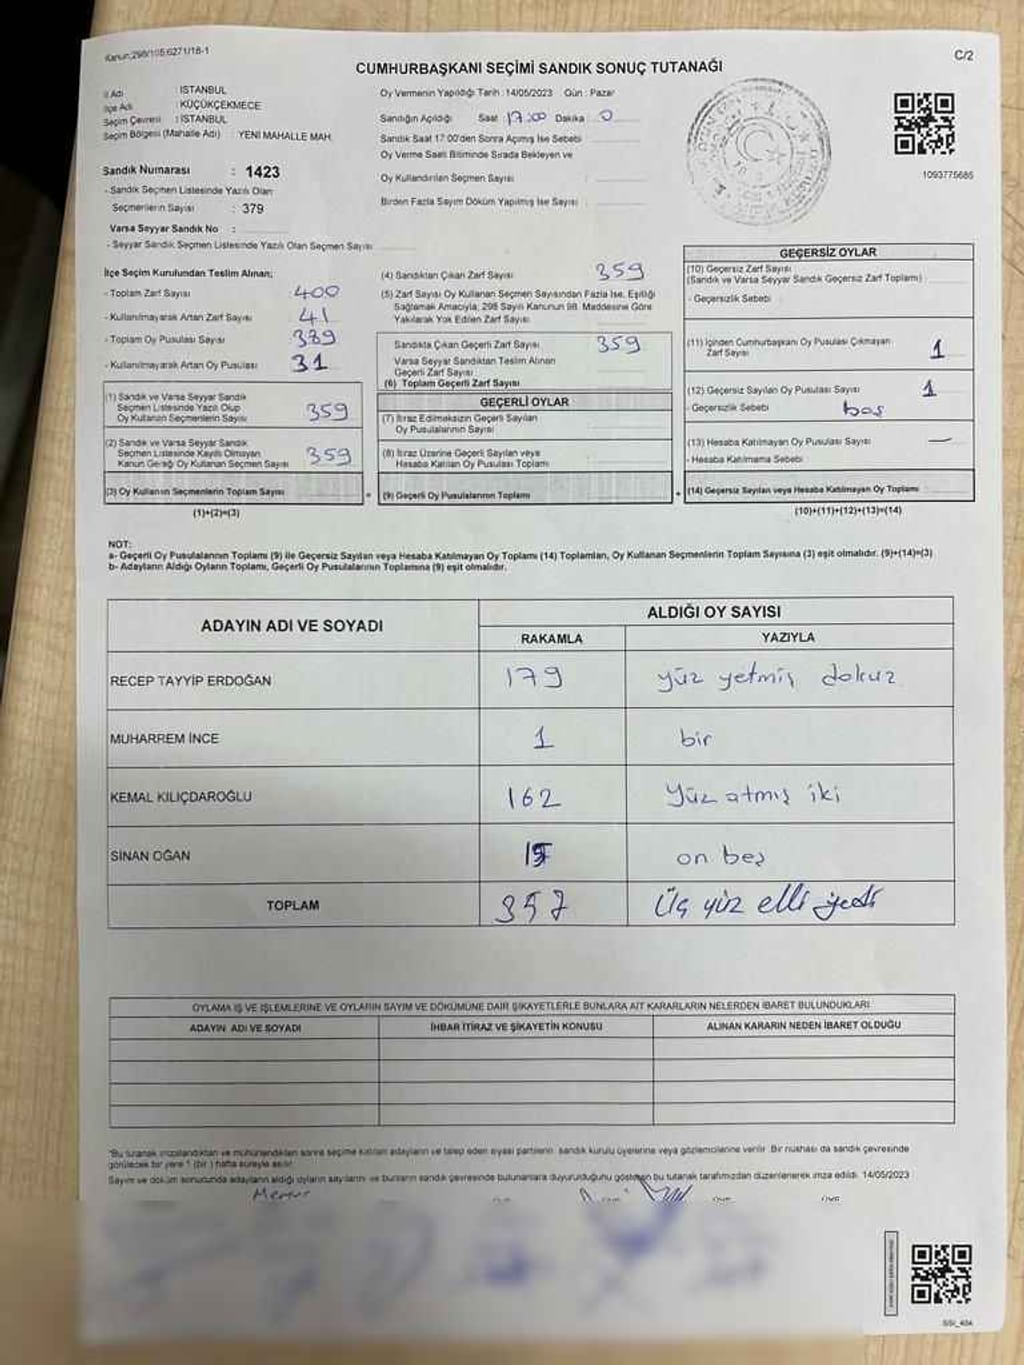 Kanun:298/105:6271/18-1
C/2
CUMHURBAŞKANI SEÇİMİ SANDIK SONUÇ TUTANAĞI
İl Adı : İSTANBUL
İlçe Adı : KÜÇÜKÇEKMECE
Seçim Çevresi : İSTANBUL
Seçim Bölgesi (Mahalle Adı) : YENİ MAHALLE MAH.
Sandık Numarası : 1423
- Sandık Seçmen Listesinde Yazılı Olan
Seçmenlerin Sayısı : 379
Varsa Seyyar Sandık No :
- Seyyar Sandık Seçmen Listesinde Yazılı Olan Seçmen Sayısı
Oy Vermenin Yapıldığı Tarih : 14/05/2023 Gün : Pazar
Sandığın Açıldığı Saat 17:00 Dakika 0
Sandık Saat 17:00'den Sonra Açımış İse Sebebi
Oy Verme Saati Bitiminde Sırada Bekleyen ve
Oy Kullandırılan Seçmen Sayısı :
Birden Fazla Sayım Döküm Yapılmış İse Sayısı :
1093775685
İlçe Seçim Kurulundan Teslim Alınan;
- Toplam Zarf Sayısı 400
- Kullanılmayarak Artan Zarf Sayısı 41
- Toplam Oy Pusulası Sayısı 389
- Kullanılmayarak Artan Oy Pusulası 31
(1) Sandık ve Varsa Seyyar Sandık
Seçmen Listesinde Yazılı Olup
Oy Kullanan Seçmenlerin Sayısı 359
(2) Sandık ve Varsa Seyyar Sandık
Seçmen Listesinde Kayıtlı Olmayan
Kanun Gereği Oy Kullanan Seçmen Sayısı 359
(3) Oy Kullanan Seçmenlerin Toplam Sayısı
(1)+(2)=(3)
(4) Sandıktan Çıkan Zarf Sayısı 359
(5) Zarf Sayısı Oy Kullanan Seçmen Sayısından Fazla İse, Eşitliği
Sağlamak Amacıyla, 298 Sayılı Kanunun 98. Maddesine Göre
Yakılarak Yok Edilen Zarf Sayısı
Sandıkta Çıkan Geçerli Zarf Sayısı 359
Varsa Seyyar Sandıktan Teslim Alınan
Geçerli Zarf Sayısı
(6) Toplam Geçerli Zarf Sayısı
GEÇERLİ OYLAR
(7) İtiraz Edilmeksizin Geçerli Sayılan
Oy Pusulalarının Sayısı
(8) İtiraz Üzerine Geçerli Sayılan veya
Hesaba Katılan Oy Pusulası Toplamı
= (9) Geçerli Oy Pusulalarının Toplamı
GEÇERSİZ OYLAR
(10) Geçersiz Zarf Sayısı
(Sandık ve Varsa Seyyar Sandık Geçersiz Zarf Toplamı)
- Geçersizlik Sebebi
(11) İçinden Cumhurbaşkanı Oy Pusulası Çıkmayan
Zarf Sayısı 1
(12) Geçersiz Sayılan Oy Pusulası Sayısı 1
- Geçersizlik Sebebi boş
(13) Hesaba Katılmayan Oy Pusulası Sayısı —
- Hesaba Katılmama Sebebi
+ (14) Geçersiz Sayılan veya Hesaba Katılmayan Oy Toplamı
(10)+(11)+(12)+(13)=(14)
NOT:
a- Geçerli Oy Pusulalarının Toplamı (9) ile Geçersiz Sayılan veya Hesaba Katılmayan Oy Toplamı (14) Toplamları, Oy Kullanan Seçmenlerin Toplam Sayısına (3) eşit olmalıdır. (9)+(14)=(3)
b- Adayların Aldığı Oyların Toplamı, Geçerli Oy Pusulalarının Toplamına (9) eşit olmalıdır.
ADAYIN ADI VE SOYADI
ALDIĞI OY SAYISI
RAKAMLA YAZIYLA
RECEP TAYYİP ERDOĞAN 179 yüz yetmiş dokuz
MUHARREM İNCE 1 bir
KEMAL KILIÇDAROĞLU 162 Yüz atmış iki
SİNAN OĞAN 15 on beş
TOPLAM 357 Üç yüz elli yedi
OYLAMA İŞ VE İŞLEMLERİNE VE OYLARIN SAYIM VE DÖKÜMÜNE DAİR ŞİKAYETLERLE BUNLARA AİT KARARLARIN NELERDEN İBARET BULUNDUKLARI
ADAYIN ADI VE SOYADI İHBAR İTİRAZ VE ŞİKAYETİN KONUSU ALINAN KARARIN NEDEN İBARET OLDUĞU
*Bu tutanak imzalandıktan ve mühürlendikten sonra seçime katılan adayların ve talep eden siyasi partilerin sandık kurulu üyelerine veya gözlemcilerine verilir. Bir nüshası da sandık çevresinde
görülecek bir yere 1 (bir) hafta süreyle asılır.
Sayım ve döküm sonucunda adayların aldığı oyların sayılarını ve bunların sandık çevresinde bulunanlara duyurulduğunu gösteren bu tutanak tarafımızdan düzenlenerek imza edildi. 14/05/2023